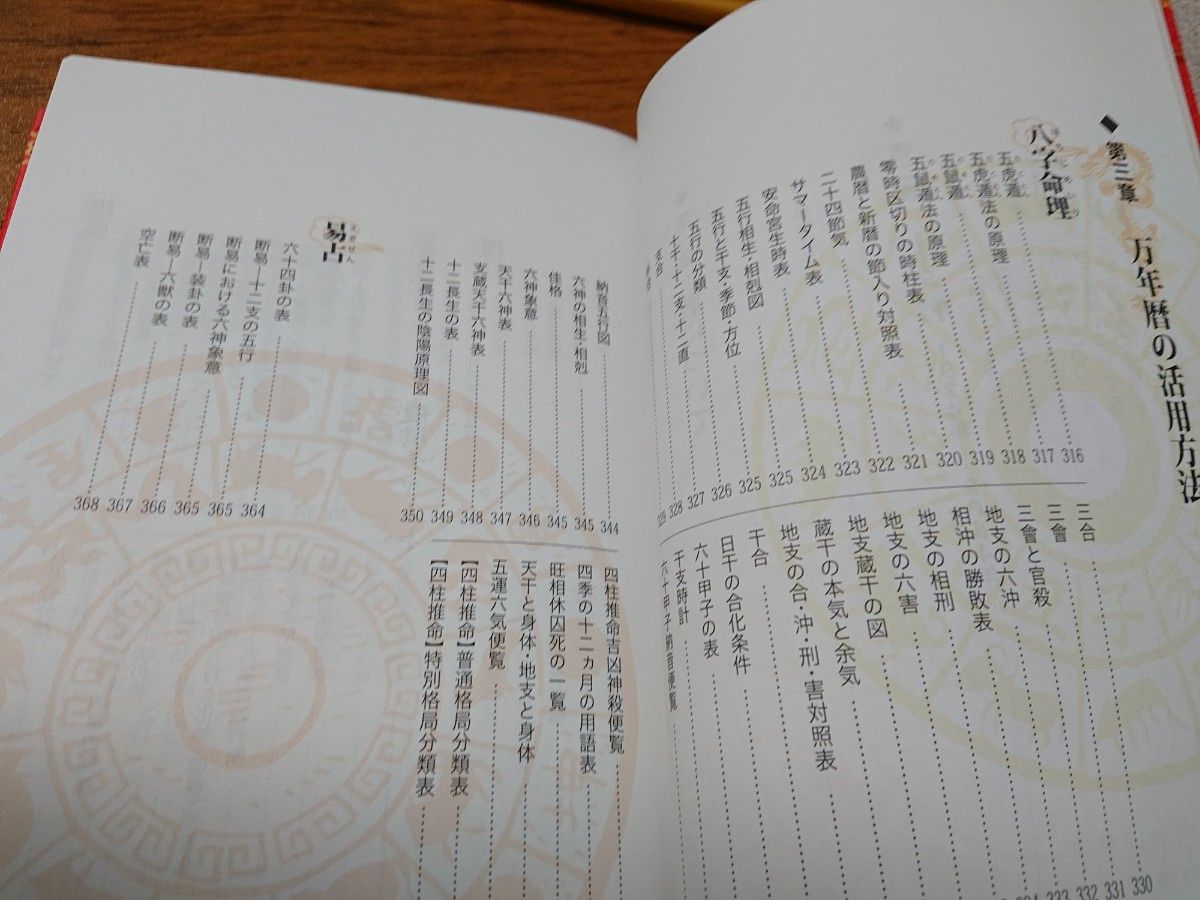 第三章 万年暦の活用方法
八字命理
五虎遁 316
五虎遁法の原理 317
五鼠遁 318
五鼠遁法の原理 319
零時区切りの時柱表 320
農暦と新暦の節入り対照表 321
二十四節気 322
サマータイム表 323
安命宮生時表 324
五行相生・相剋図 325
五行と干支・季節・方位 325
五行の分類 326
十干・十二支・十二直 327
328
329
三合 330
三會 331
三會と官殺 332
地支の六沖 333
相沖の勝敗表
地支の相刑
地支の六害
地支蔵干の図
蔵干の本気と余気
地支の合・沖・刑・害対照表
干合
日干の合化条件
六十甲子の表
干支時計
六十甲子納音便覧
納音五行図 344
六神の相生・相剋 345
佳格 345
六神象意 346
天干六神表 347
支蔵天干六神表 348
十二長生の表 349
十二長生の陰陽原理図 350
四柱推命吉凶神殺便覧
四季の十二ヵ月の用語表
旺相休囚死の一覧
天干と身体・地支と身体
五運六気便覧
【四柱推命】普通格局分類表
【四柱推命】特別格局分類表
易占
六十四卦の表 364
断易―十二支の五行 365
断易における六神象意 365
断易―装卦の表 366
断易―六獣の表 367
空亡表 368